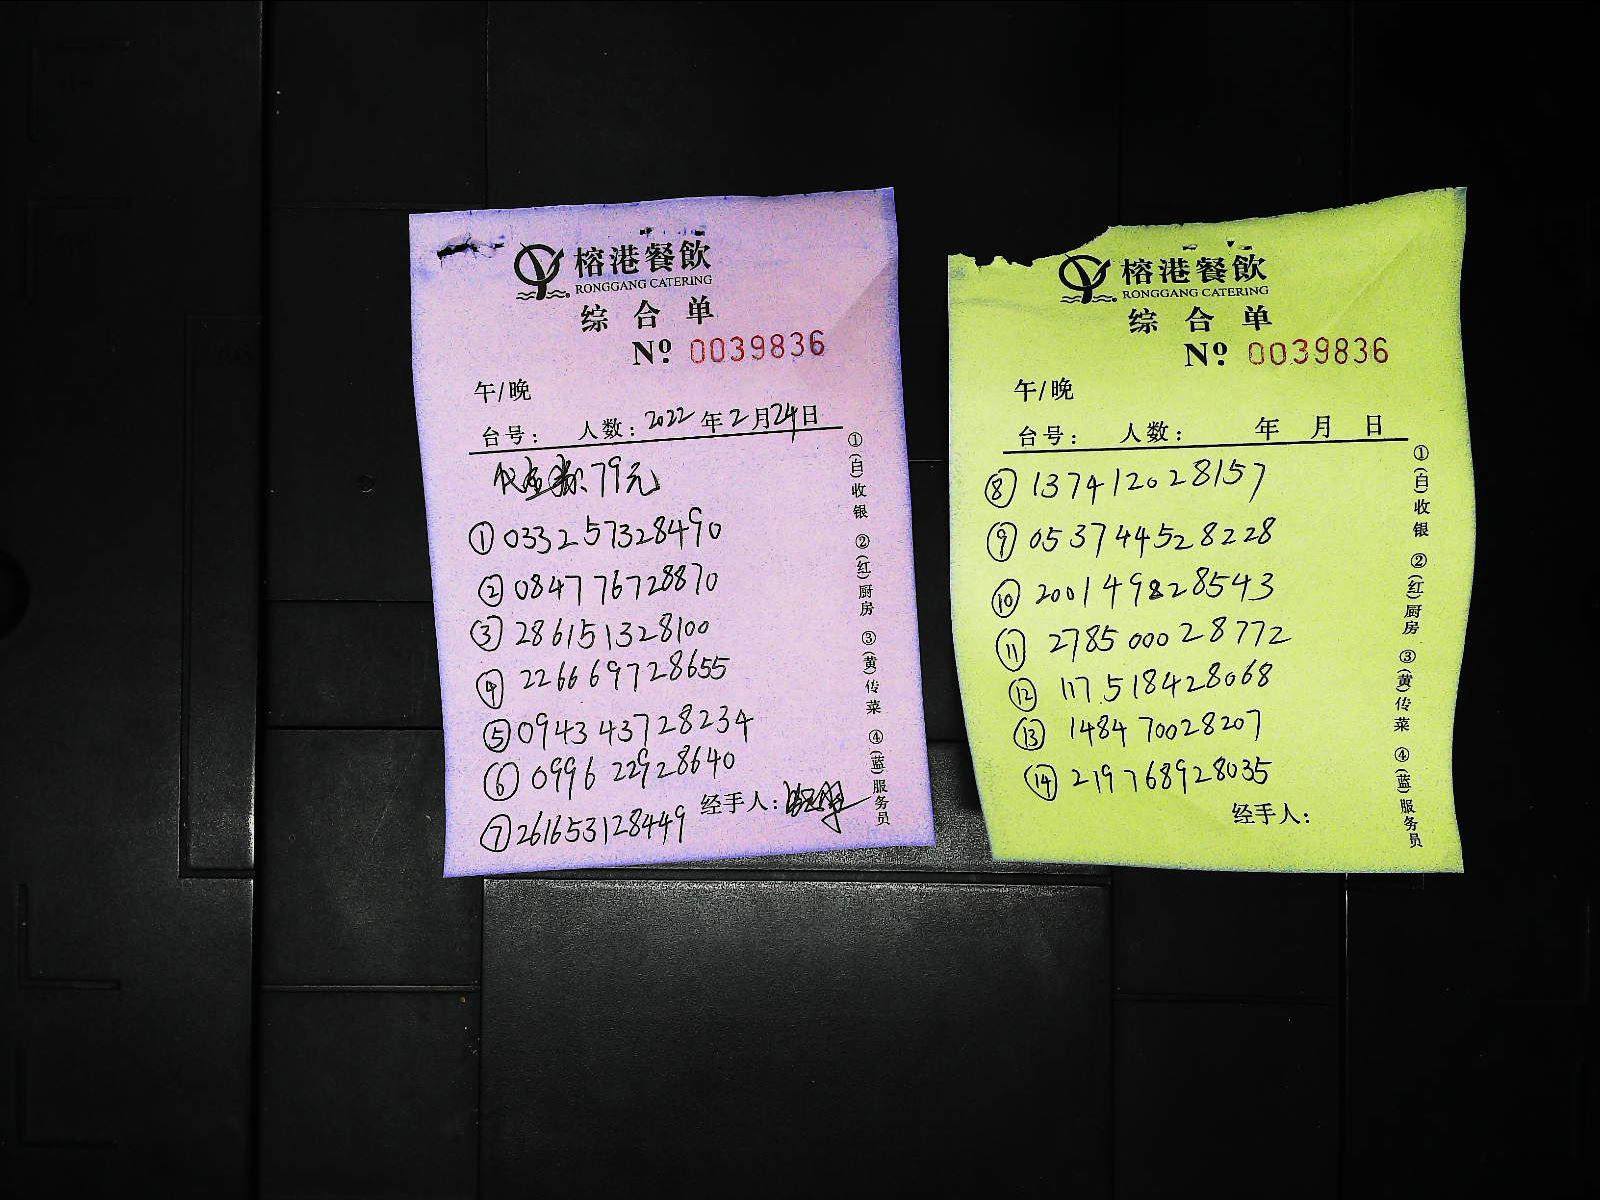 榕港餐飲
RONGGANG CATERING
综合单
Nº 0039836
午/晚
台号: 人数: 2022年2月24日
79元
①033257328490
②084776728870
③286151328100
④226669728655
⑤094343728234
⑥099622928640
⑦261653128449
经手人:
①(白)收银 ②(红)厨房 ③(黄)传菜 ④(蓝)服务员
榕港餐飲
RONGGANG CATERING
综合单
Nº 0039836
午/晚
台号: 人数: 年 月 日
⑧137412028157
⑨053744528228
⑩200149828543
⑪278500028772
⑫117518428068
⑬148470028207
⑭219768928035
经手人:
①(白)收银 ②(红)厨房 ③(黄)传菜 ④(蓝)服务员